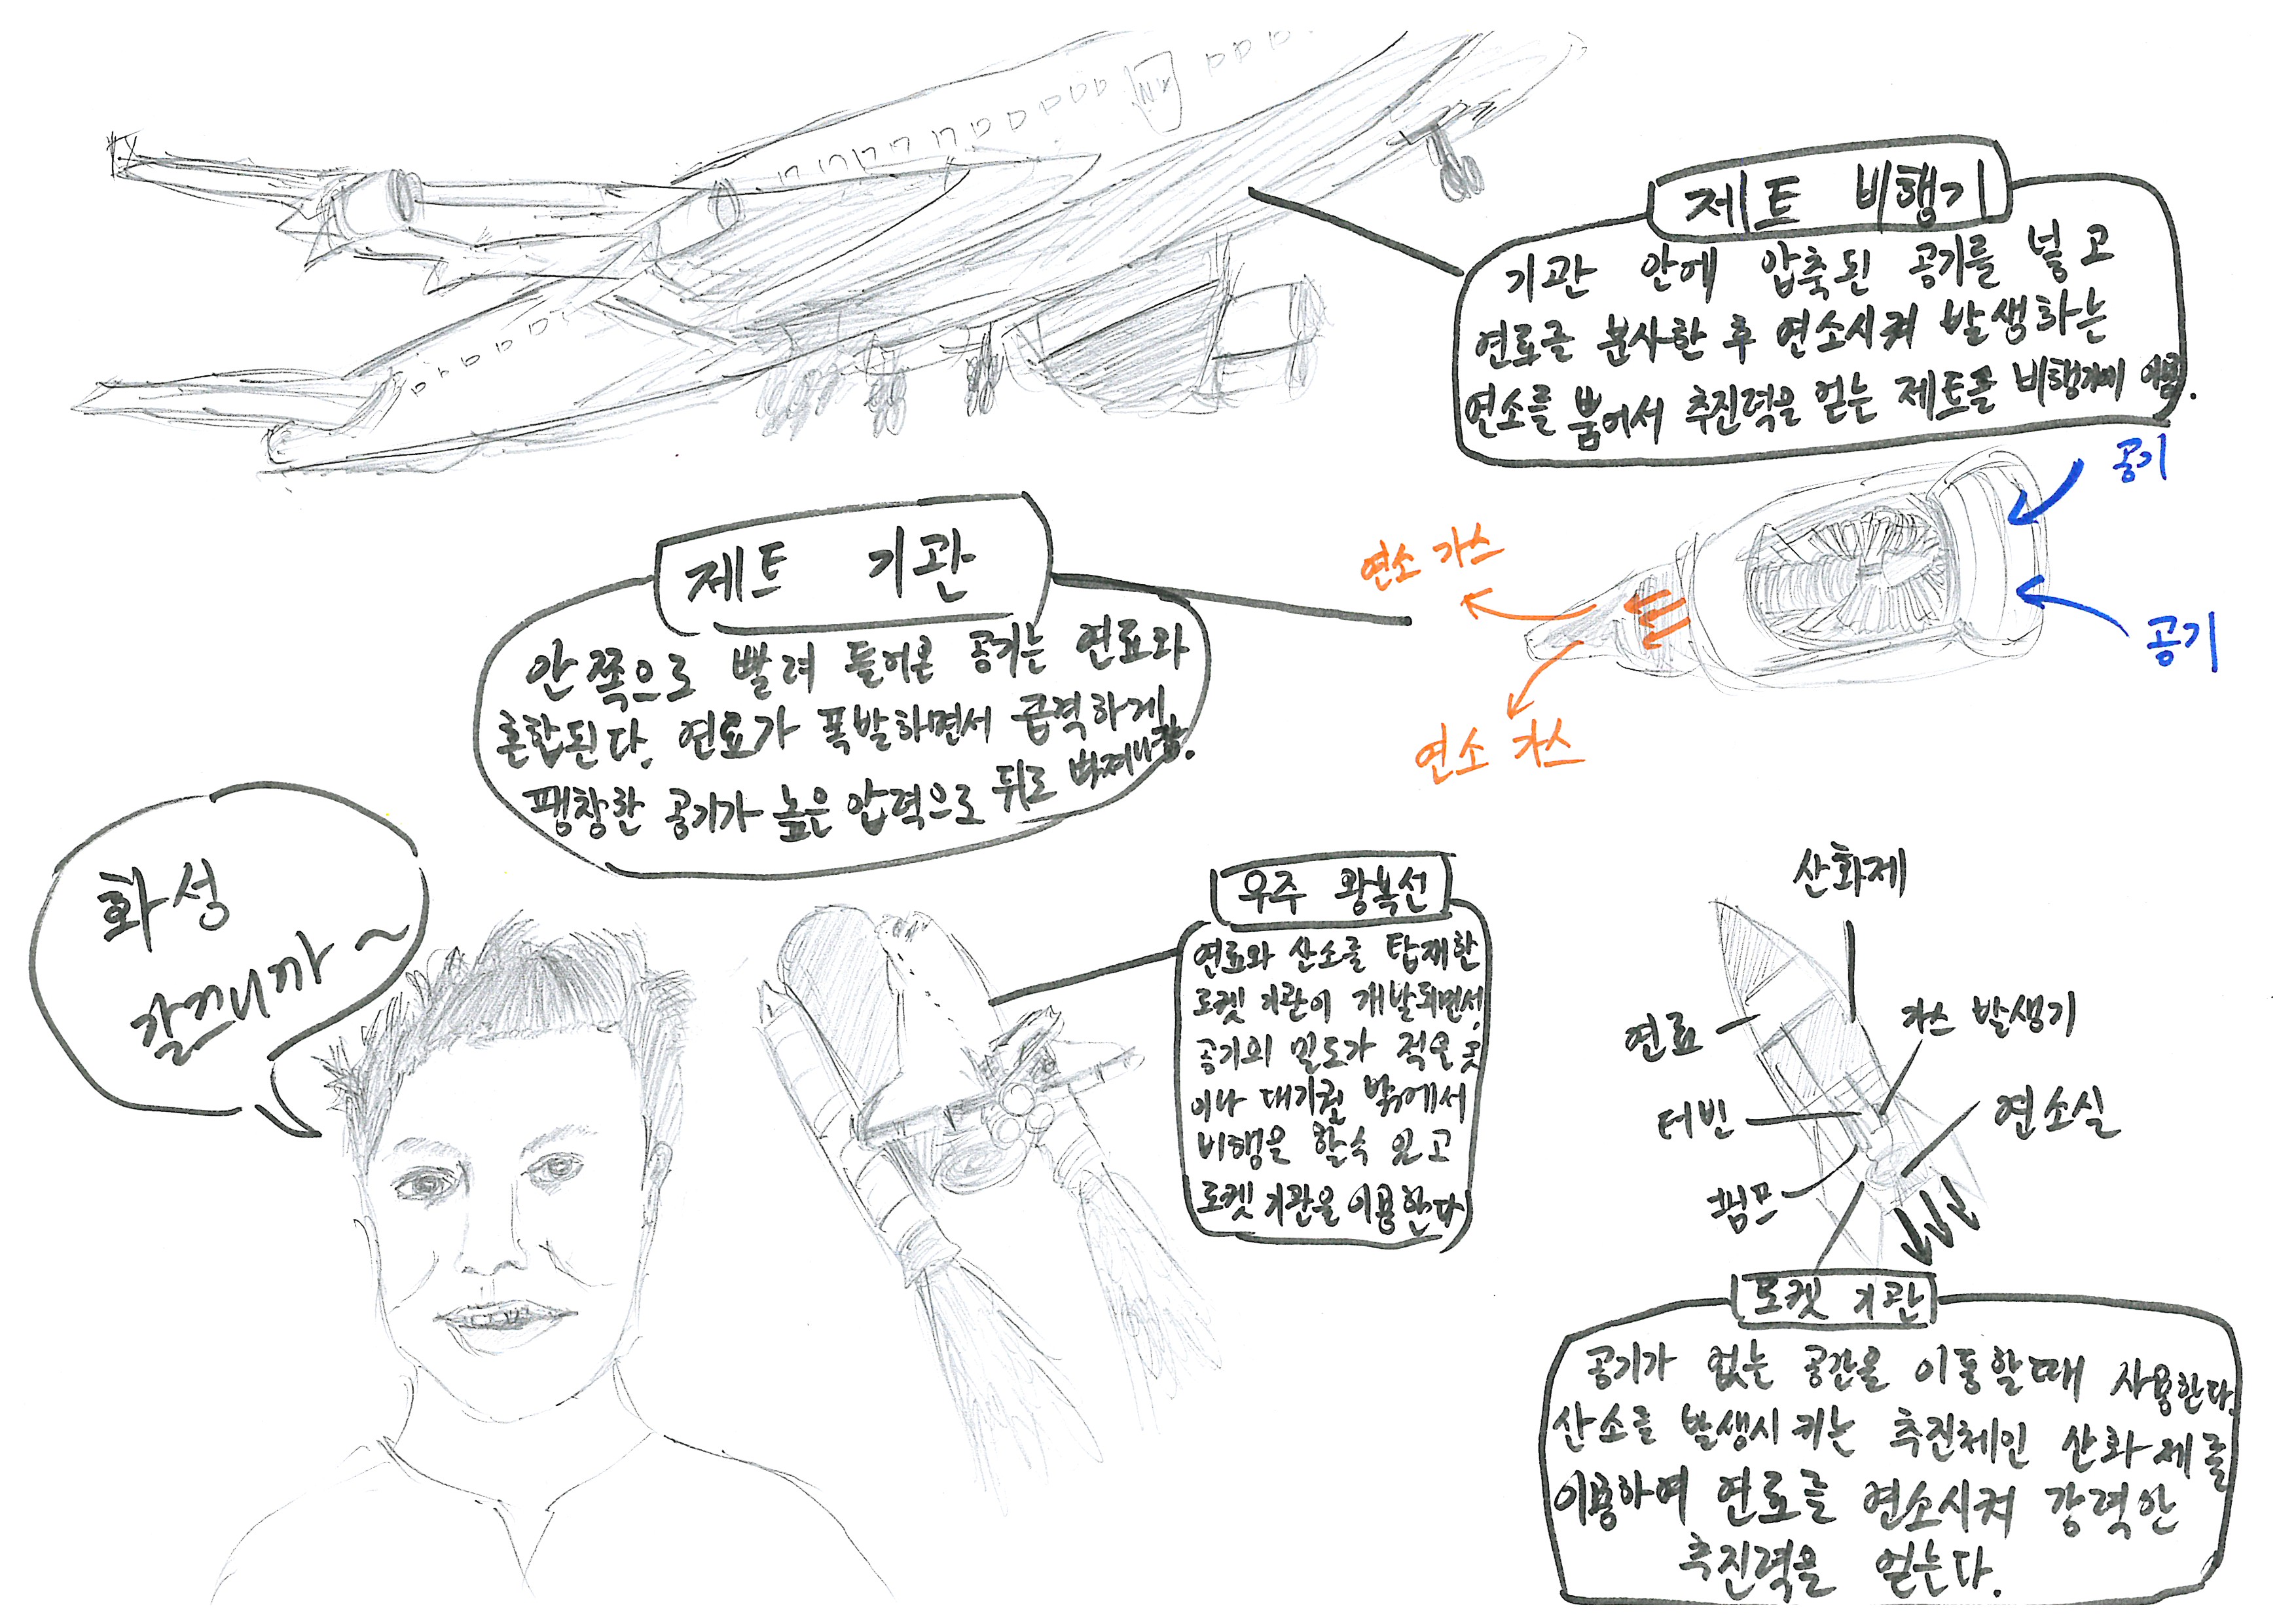 제트 비행기
기관 안에 압축된 공기를 넣고
연료를 분사한 후 연소시켜 발생하는
연소를 뿜어서 추진력을 얻는 제트를 비행기에
공기
공기
연소 가스
연소 가스
제트 기관
안쪽으로 빨려 들어온 공기는 연료와
혼합된다. 연료가 폭발하면서 급격하게
팽창한 공기가 높은 압력으로 뒤로
화성
갈끄니까~
우주 왕복선
연료와 산소를 탑재한
로켓 기관이 개발되면서,
공기의 밀도가 적은 곳
이나 대기권 밖에서
비행을 할수 있고
로켓 기관을 이용한다
산화제
연료
가스 발생기
터빈
연소실
펌프
로켓 기관
공기가 없는 공간을 이동할때 사용한다.
산소를 발생시키는 추진체인 산화제를
이용하여 연료를 연소시켜 강력한
추진력을 얻는다.